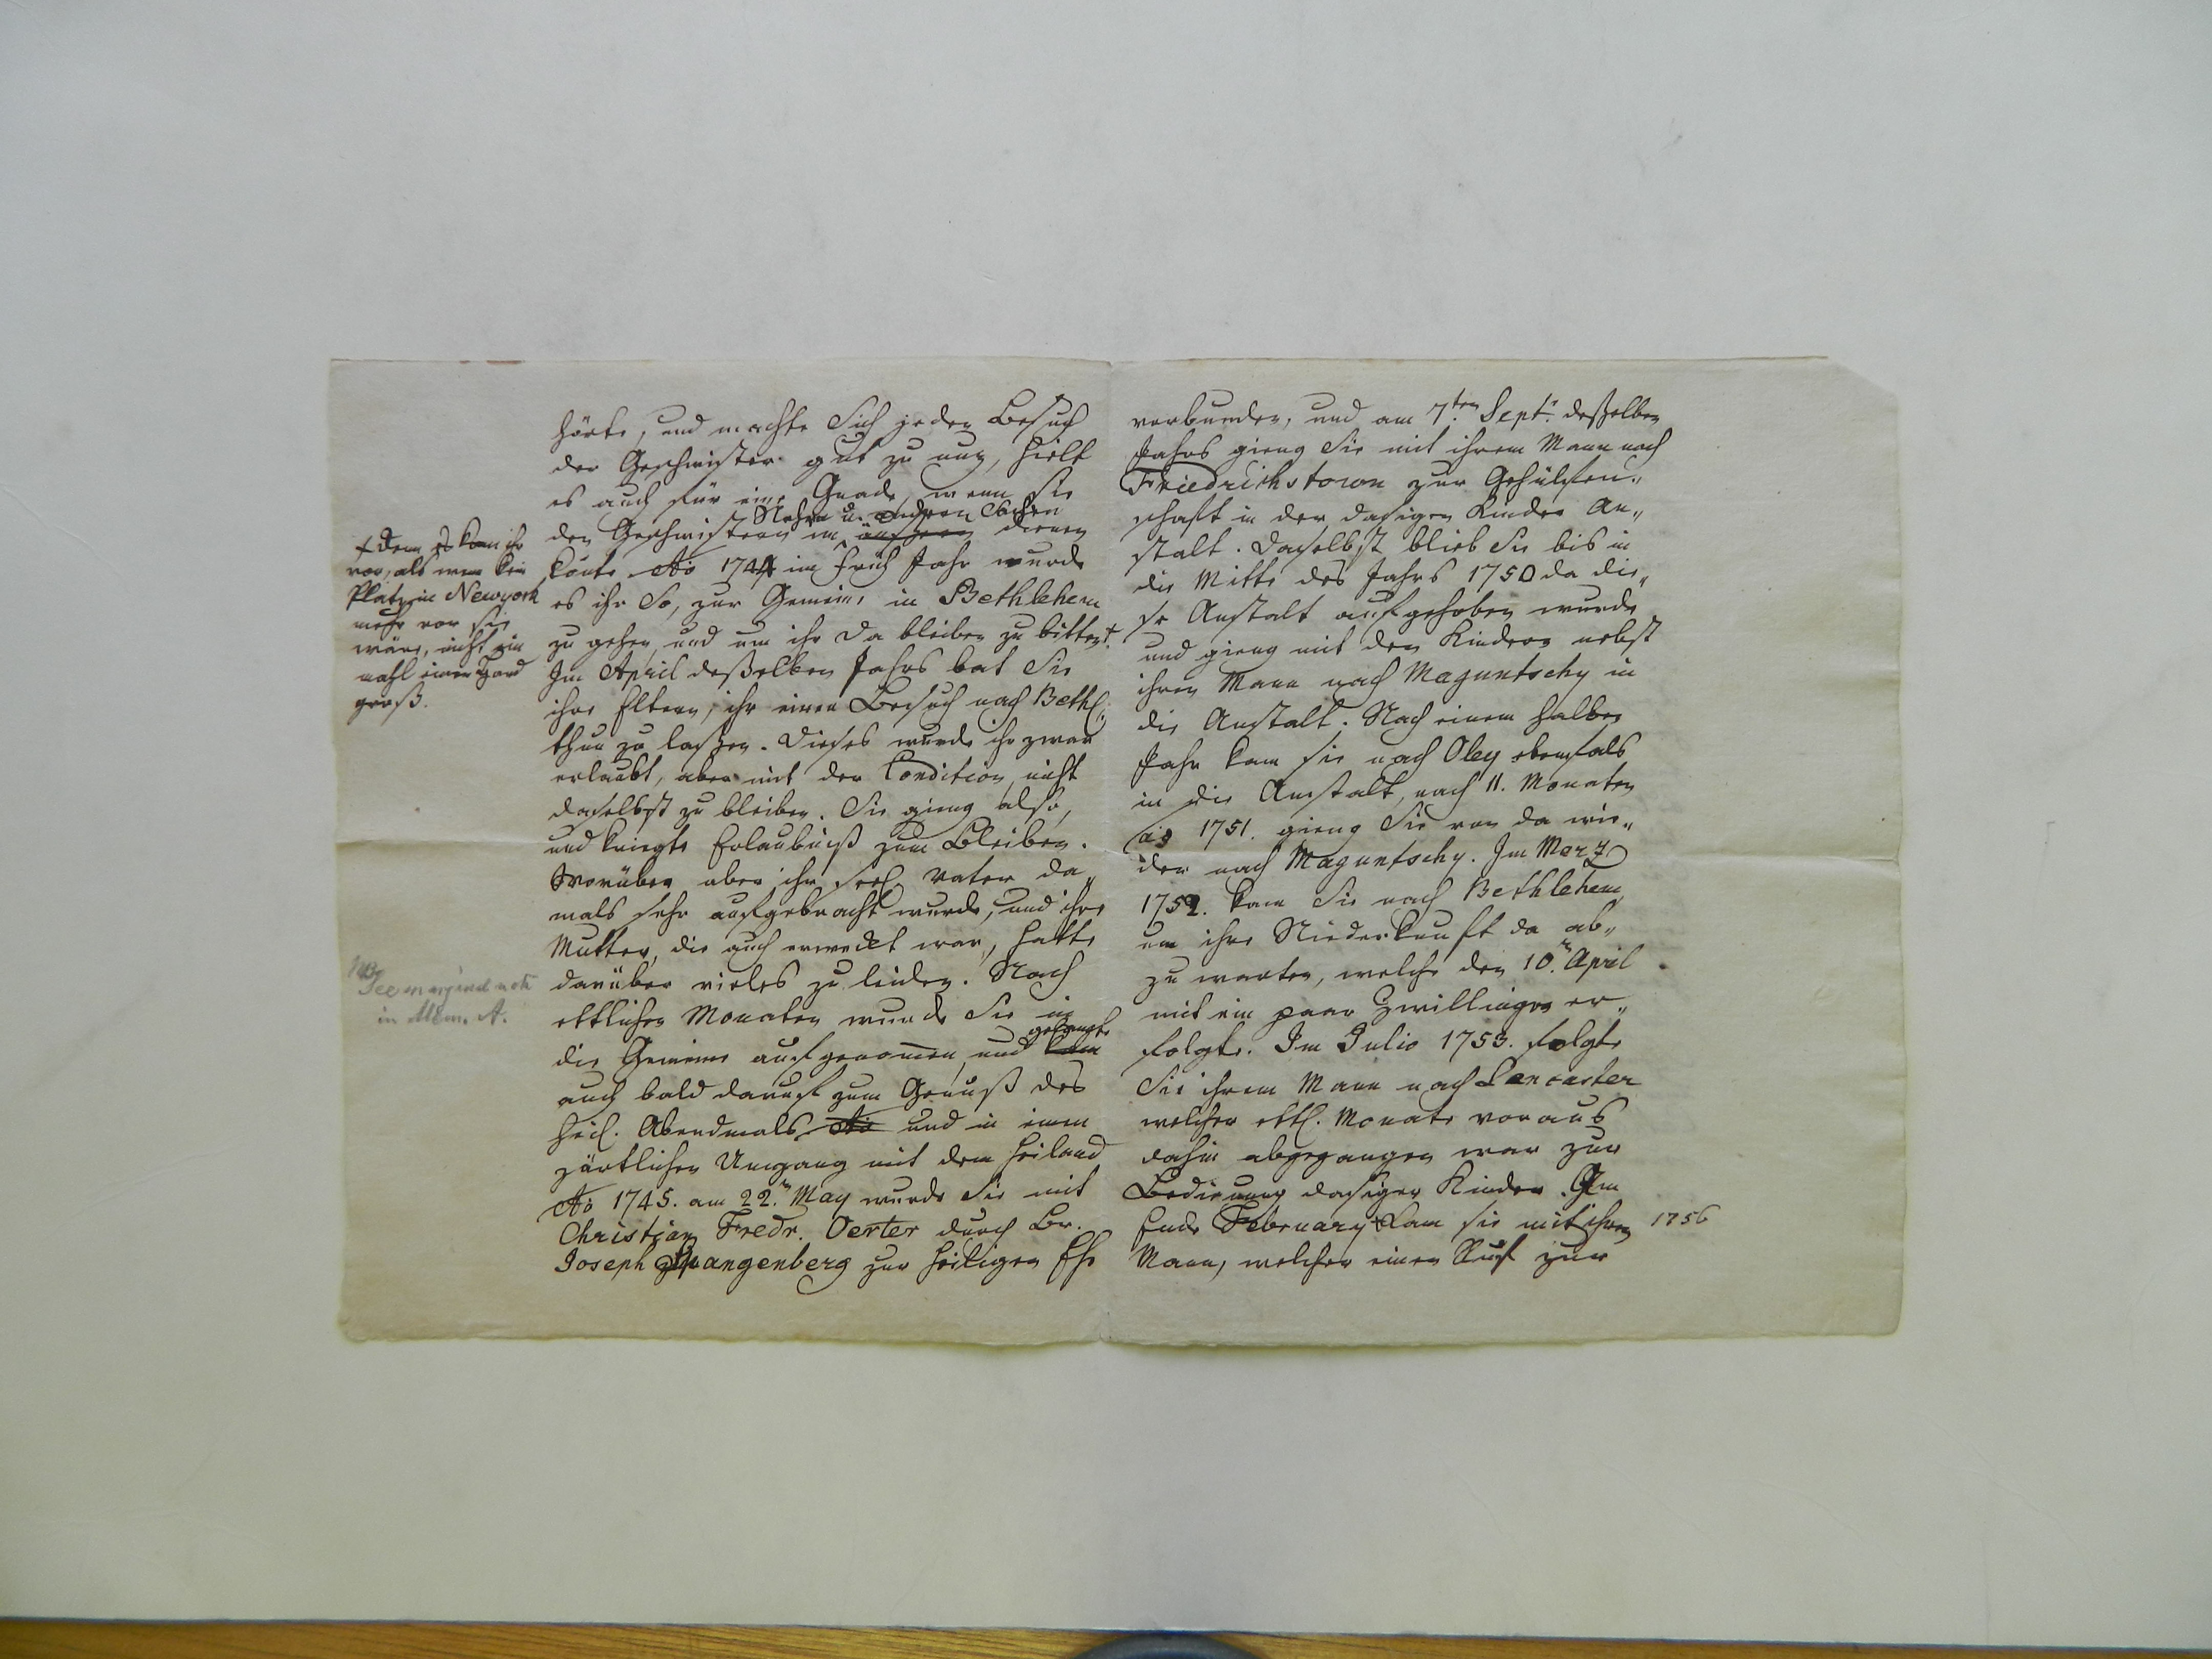 hörte, und machte Sich jeden Besuch
der Geschwister gut zu nuz, hielt
es auch für eine Gnade, wenn sie
Nehen u. andern Sachen
den Geschwistern im äußern dienen
konte Ao 1744 im Früh Jahr wurde
es ihr So, zur Gemeine in Bethlehem
zu gehen, und um ihr da bleiben zu bitten.+
Im April deßelben Jahrs bat Sie
ihre Eltern, ihr einen Besuch nach Bethl.
thun zu laßen. Dieses wurde ihr zwar
erlaubt, aber mit der Condition, nicht
daselbst zu bleiben. Sie gieng also,
und kriegte Erlaubniß zum Bleiben.
Worüber aber ihr seel Vater da„
mals sehr aufgebracht wurde, und ihre
Mutter, die auch erweckt war, hatte
darüber vieles zu leiden. Nach
ettlichen Monaten wurde Sie in
gelangte
die Gemeine aufgenomen, und kam
auch bald darauf zum Genuß des
heil. Abendmals Ao und in einen
zärtlichen Umgang mit dem Heiland
Ao 1745. am 22.n May wurde Sie mit
Christian Fredr. Oerter durch Br.
Joseph Spangenberg zur heiligen Ehe
+ denn es kam ihr
vor, als wenn kein
Platz in Newyork
mehr vor sie
wäre, nicht ein
mahl einer Hand
groß.
NB
See marginal note
in Mem. A.
verbunden, und am 7ten Septr. deßelben
Jahrs gieng Sie mit ihrem Mann nach
Friedrichstown zur Gehülfen„
schaft in der dasigen Kinder An„
stalt. Daselbst blieb Sie bis in
die Mitte des Jahrs 1750 da die„
se Anstalt aufgehoben wurde
und gieng mit den Kindern nebst
ihren Mann nach Maguntschy in
die Anstalt. Nach einem halben
Jahr kam sie nach Oley ebenfals
in die Anstalt, nach 11. Monaten
ao 1751. gieng Sie von da wie„
der nach Maguntschy. Im Merz
1752. kam Sie nach Bethlehem
um ihre Niederkunft da ab„
zu warten, welche den 10.n April
mit ein paar Zwillingen er„
folgte. Im Julio 1753. folgte
Sie ihrem Mann nach Lancaster
welcher ettl. Monate voraus
dahin abgegangen war zur
Bedienung dasiger Kinder. Im
Ende February kam sie mit ihren 1756
Mann, welcher einen Ruf zur